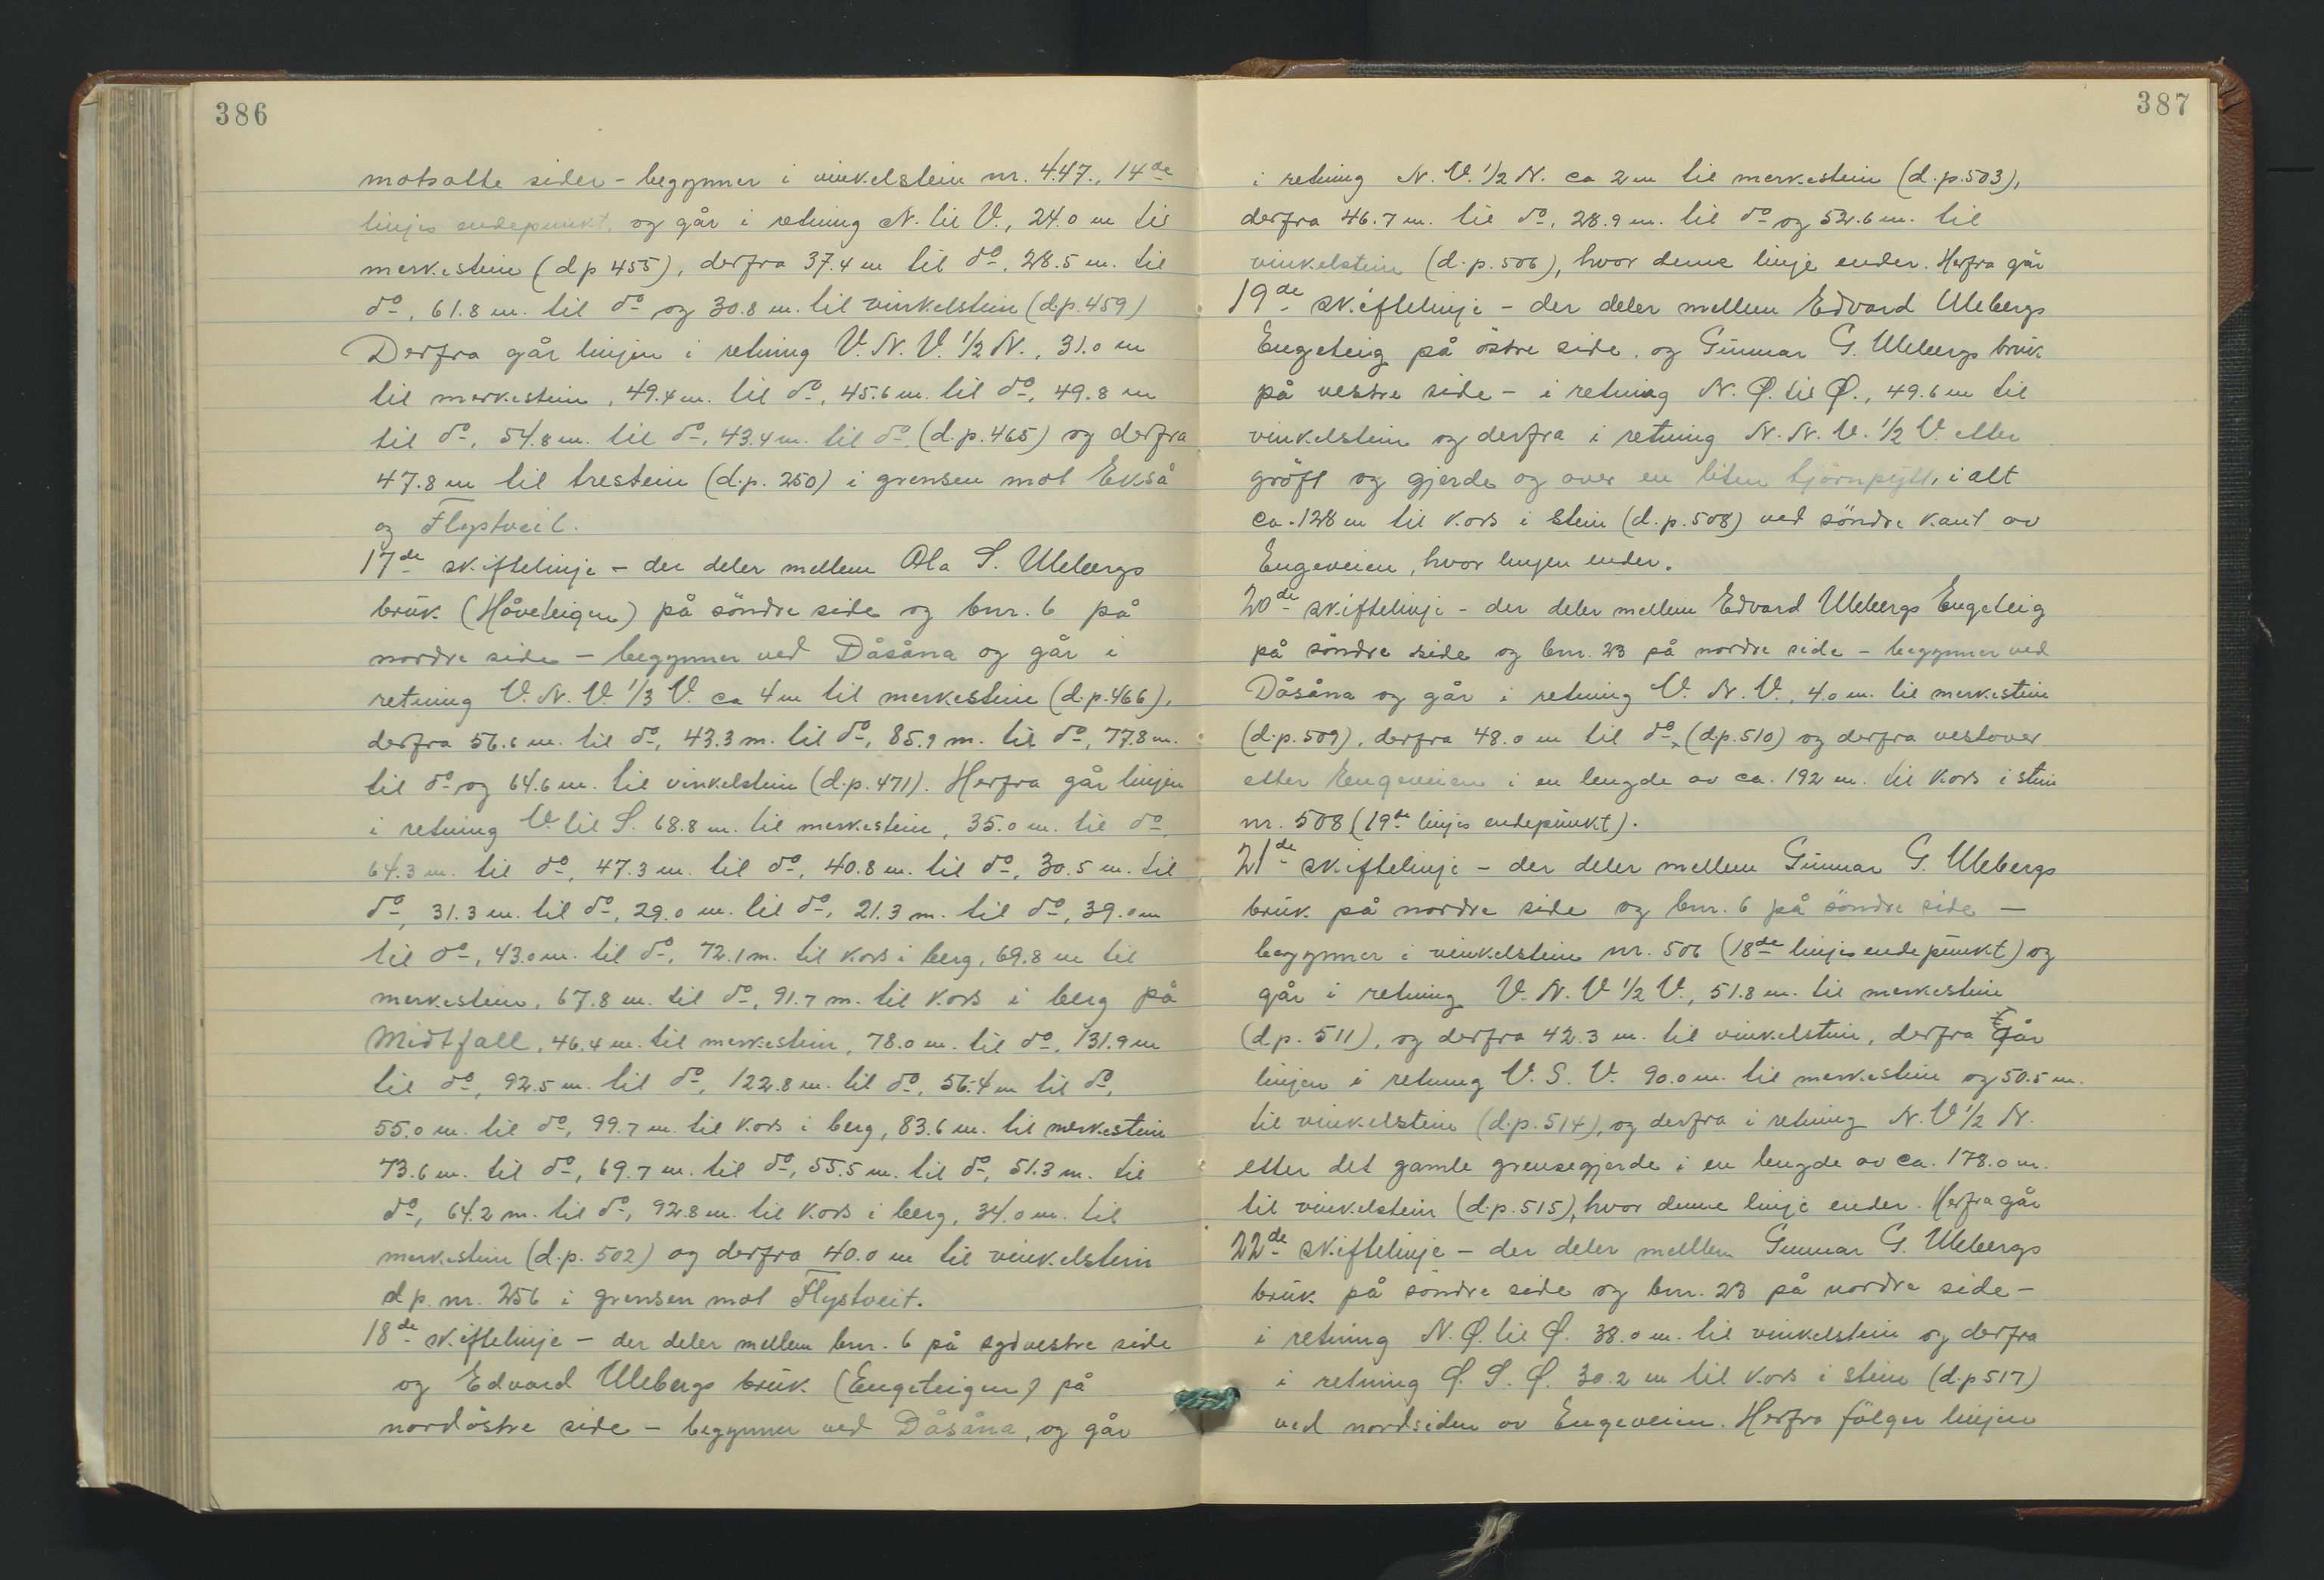 386
motsatte sider - begynner i vinkelstein nr. 447., 14de
linjes endepunkt, og går i retning N. til V., 24.0 m til
merkestein (d p 455), derfra 37.4 m til do, 28.5 m. til
do, 61.8 m. til do og 30.8 m. til vinkelstein (d.p. 459)
Derfra går linjen i retning V. N. V. 1/2 N., 31.0 m
til merkestein, 49.4 m. til do, 45.6 m. til do, 49.8 m
til do, 54.8 m. til do, 43.4 m. til do (d.p. 465) og derfra
47.8 m til trestein (d.p. 250) i grensen mot Ekså
og Flystveit.
17de skiftelinje - der deler mellem Ola S. Ulebergs
bruk (Håveteigen) på söndre side og bnr. 6 på
nordre side - begynner ved Dåsåna og går i
retning V. N. V. 1/3 V. ca 4 m til merkestein (d.p. 466),
derfra 56.6 m. til do, 43.3 m. til do, 85.9 m. til do, 77.8 m.
til do og 64.6 m. til vinkelstein (d.p. 471). Herfra går linjen
i retning V. til S. 68.8 m. til merkestein, 35.0 m. til do,
64.3 m. til do, 47.3 m. til do, 40.8 m. til do, 30.5 m. til
do, 31.3 m. til do, 29.0 m. til do, 21.3 m. til do, 39.0 m
til do, 43.0 m. til do, 72.1 m. til kors i berg, 69.8 m til
merkestein, 67.8 m. til do, 91.7 m. til kors i berg på
Midtfall, 46.4 m. til merkestein, 78.0 m. til do, 131.9 m
til do, 92.5 m. til do, 122.8 m. til do, 56.4 m til do,
55.0 m. til do, 99.7 m. til kors i berg, 83.6 m. til merkestein
73.6 m. til do, 69.7 m. til do, 55.5 m. til do, 51.3 m. til
do, 64.2 m. til do, 92.8 m. til kors i berg, 34.0 m. til
merkestein (d.p. 502) og derfra 40.0 m til vinkelstein
d p. nr. 256 i grensen mot Flystveit.
18de skiftelinje - der deler mellem bnr. 6 på sydvestre side
og Edvard Ulebergs bruk (Engeteigen) på
nordöstre side - begynner ved Dåsåna, og går
387
i retning N. V. 1/2 N. ca 2 m til merkestein (d.p. 503),
derfra 46.7 m. til do, 28.9 m. til do og 52.6 m. til
vinkelstein (d.p. 506), hvor denne linje ender. Herfra går
19de skiftelinje - der deler mellem Edvard Ulebergs
Engeteig på östre side, og Gunnar G. Ulebergs bruk
på vestre side - i retning N. Ø. til Ø., 49.6 m til
vinkelstein og derfra i retning N. N. V. 1/2 V. etter
gröft og gjerde og over en liten tjörnpytt, i alt
ca. 128 m til kors i stein (d.p. 508) ved söndre kant av
Engeveien, hvor linjen ender.
20de skiftelinje - der deler mellem Edvard Ulebergs Engeteig
på söndre side og bnr. 23 på nordre side - begynner ved
Dåsåna og går i retning V. N. V., 4.0 m. til merkestein
(d.p. 509), derfra 48.0 m til do, (d.p. 510) og derfra vestover
etter Engeveien i en lengde av ca. 192 m. til kors i stein
nr. 508 (19de linjes endepunkt).
21de skiftelinje - der deler mellem Gunnar G. Ulebergs
bruk på nordre side og bnr. 6 på söndre side -
begynner i vinkelstein nr. 506 (18de linjes endepunkt) og
går i retning V. N. V 1/2 V., 51.8 m. til merkestein
(d p. 511), og derfra 42.3 m. til vinkelstein, derfra går
linjen i retning V. S. V. 90.0 m. til merkestein og 50.5 m.
til vinkelstein (d.p. 514), og derfra i retning N. V 1/2 N.
etter det gamle grensegjerde i en lengde av ca. 178.0 m.
til vinkelstein (d.p. 515), hvor denne linje ender. Herfra går
22de skiftelinje - der deler mellem Gunnar G. Ulebergs
bruk på söndre side og bnr. 23 på nordre side -
i retning N. Ø. til Ø. 38.0 m. til vinkelstein og derfra
i retning Ø. S. Ø. 30.2 m til kors i stein (d.p 517)
ved nordsiden av Engeveien. Herfra fölger linjen